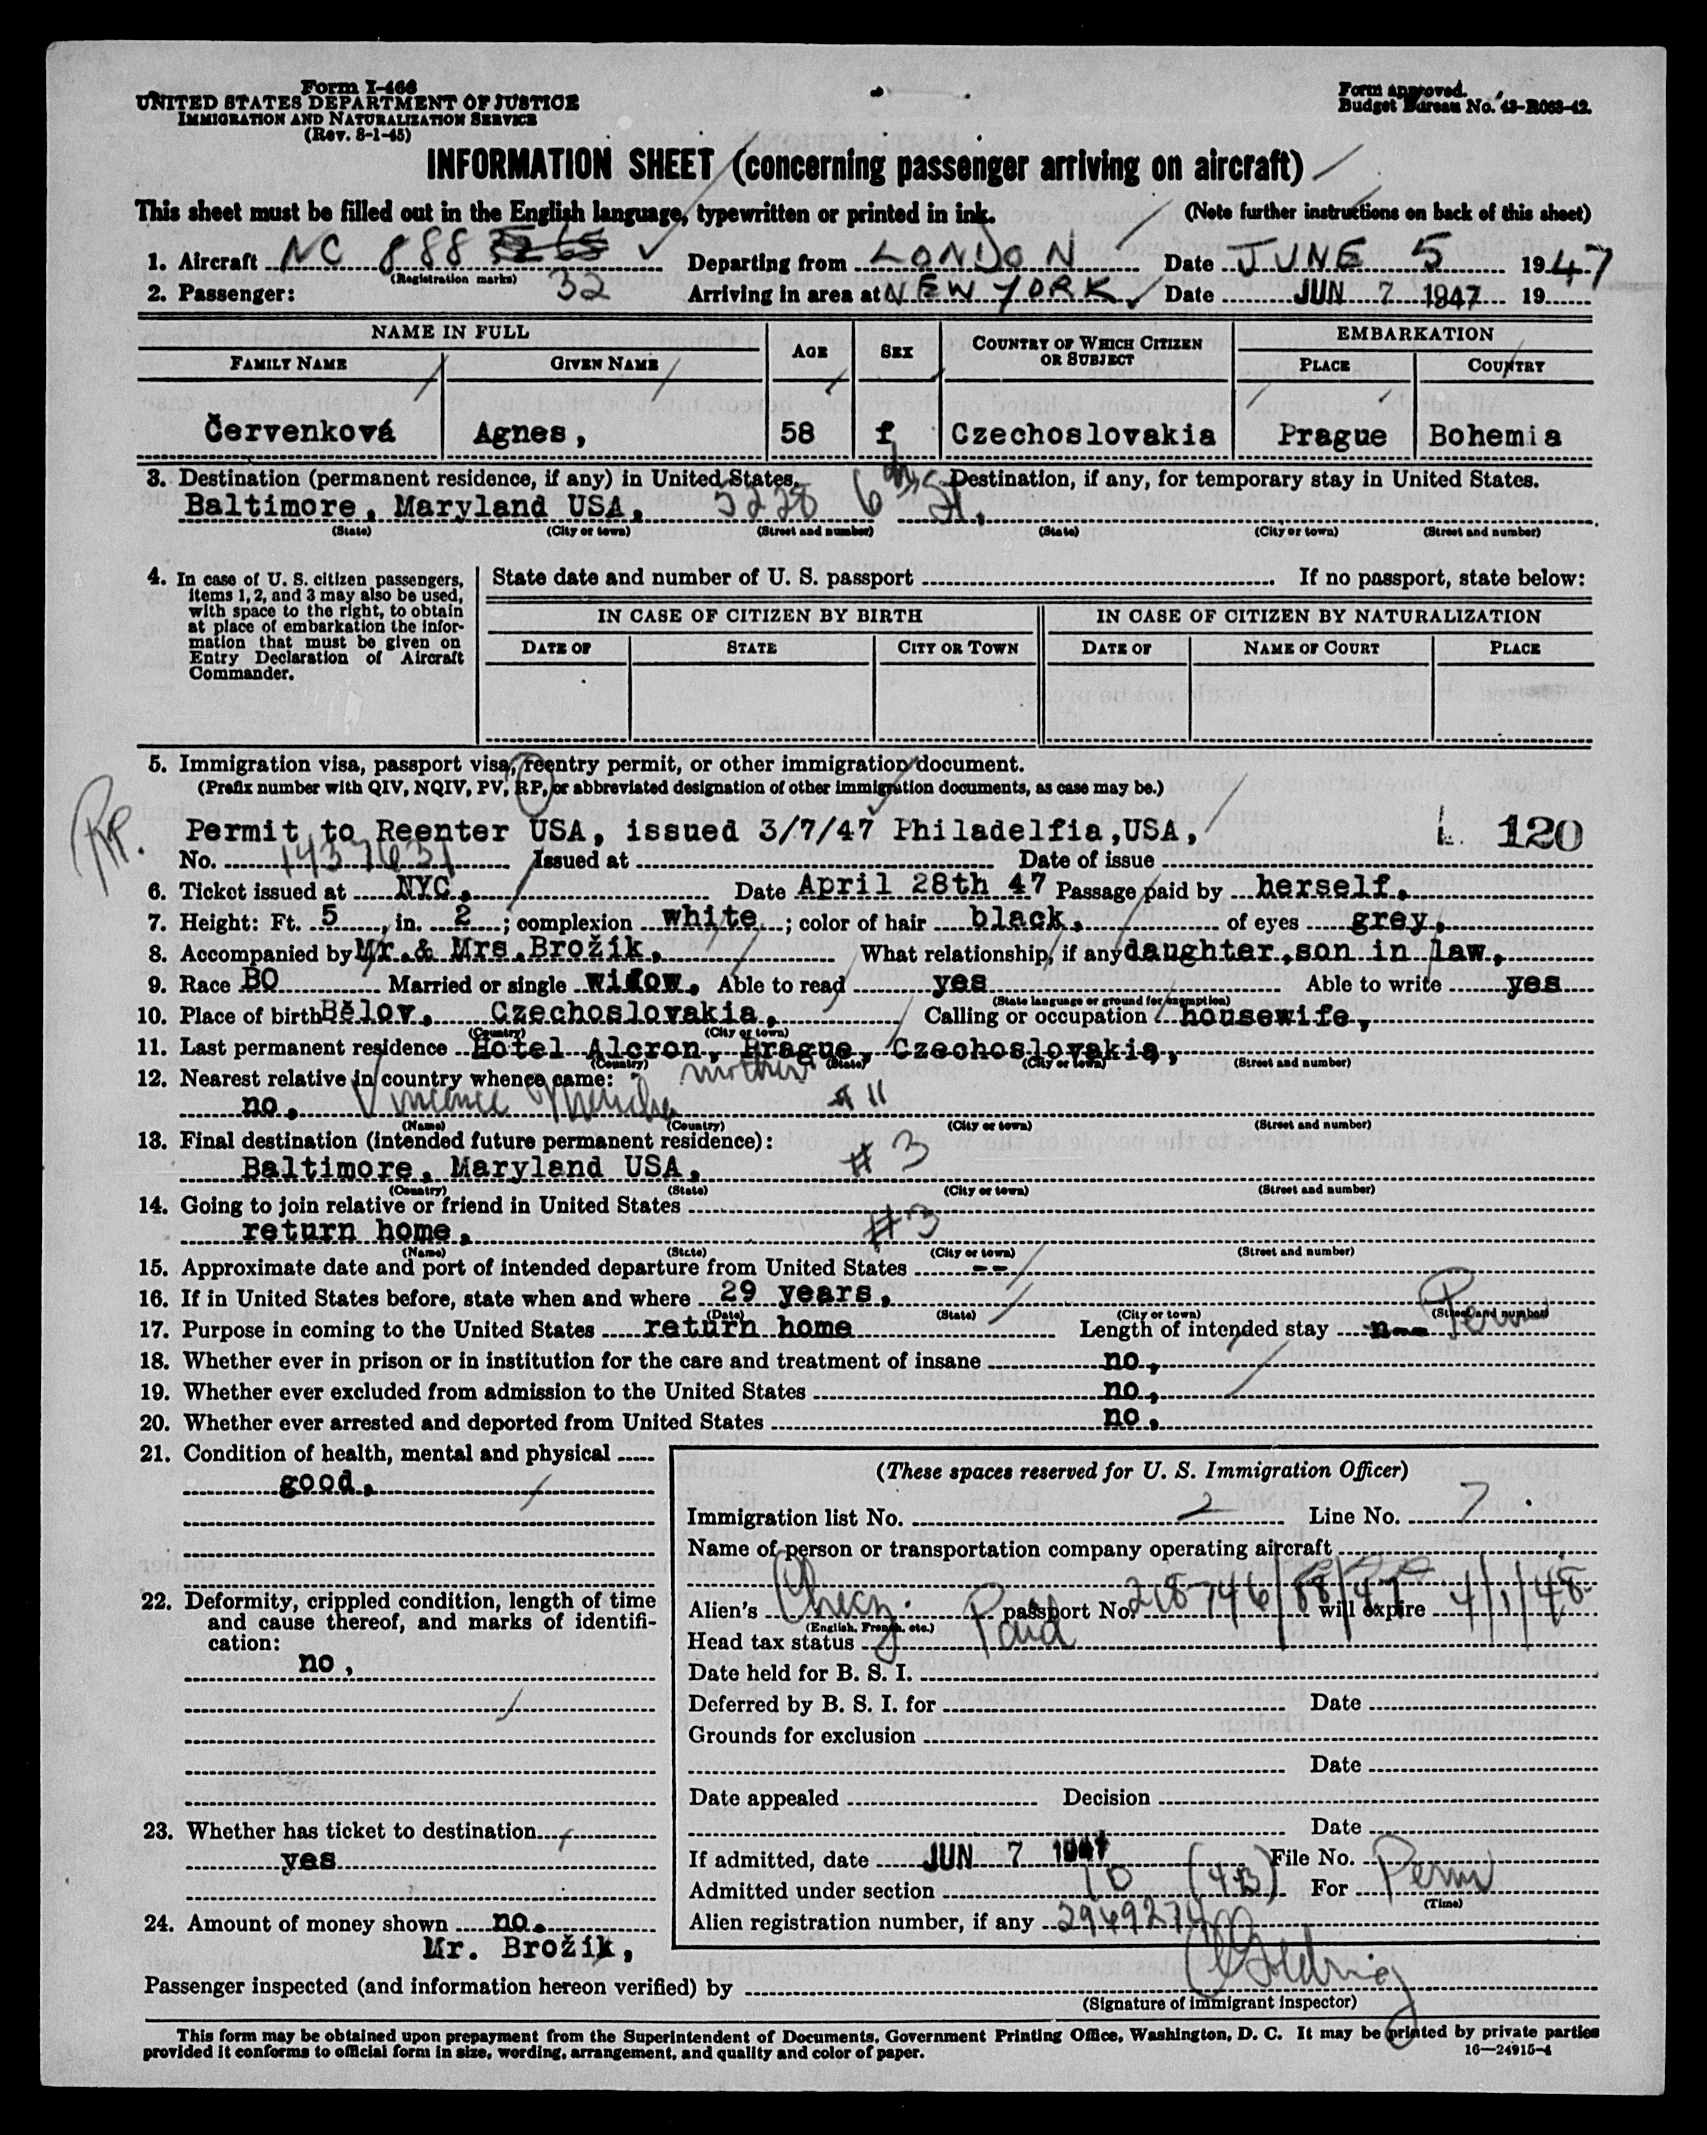 Form I-466
UNITED STATES DEPARTMENT OF JUSTICE
IMMIGRATION AND NATURALIZATION SERVICE
(Rev. 8-1-45)
Form approved.
Budget Bureau No. 43-R063-42.
INFORMATION SHEET (concerning passenger arriving on aircraft)
This sheet must be filled out in the English language, typewritten or printed in ink. (Note further instructions on back of this sheet)
1. Aircraft NC 888 Departing from LONDON Date JUNE 5 1947
(Registration marks) 32
2. Passenger: Arriving in area at NEW YORK Date JUN 7 1947 19
NAME IN FULL AGE SEX COUNTRY OF WHICH CITIZEN OR SUBJECT EMBARKATION
FAMILY NAME GIVEN NAME PLACE COUNTRY
Červenková Agnes, 58 f Czechoslovakia Prague Bohemia
3. Destination (permanent residence, if any) in United States. Destination, if any, for temporary stay in United States.
Baltimore, Maryland USA, 5228 6th St.
(State) (City or town) (Street and number) (State) (City or town) (Street and number)
4. In case of U. S. citizen passengers, items 1, 2, and 3 may also be used, with space to the right, to obtain at place of embarkation the information that must be given on Entry Declaration of Aircraft Commander.
State date and number of U. S. passport If no passport, state below:
IN CASE OF CITIZEN BY BIRTH IN CASE OF CITIZEN BY NATURALIZATION
DATE OF STATE CITY OR TOWN DATE OF NAME OF COURT PLACE
5. Immigration visa, passport visa, reentry permit, or other immigration document.
(Prefix number with QIV, NQIV, PV, RP, or abbreviated designation of other immigration documents, as case may be.)
RP.
Permit to Reenter USA, issued 3/7/47 Philadelfia,USA, L. 120
No. 1437631 Issued at Date of issue
6. Ticket issued at NYC, Date April 28th 47 Passage paid by herself,
7. Height: Ft. 5, in. 2; complexion white; color of hair black, of eyes grey,
8. Accompanied by Mr.& Mrs.Brožik, What relationship, if any daughter,son in law,
9. Race BO Married or single widow, Able to read yes Able to write yes
(State language or ground for exemption)
10. Place of birth Bělov, Czechoslovakia, Calling or occupation housewife,
(Country) (City or town)
11. Last permanent residence Hotel Alcron, Prague, Czechoslovakia,
(Country) (State) (City or town) (Street and number)
12. Nearest relative in country whence came: mother
no, Vincence # 11
(Name) (Country) (City or town) (Street and number)
13. Final destination (intended future permanent residence):
Baltimore, Maryland USA, # 3
(Country) (State) (City or town) (Street and number)
14. Going to join relative or friend in United States
return home, # 3
(Name) (State) (City or town) (Street and number)
15. Approximate date and port of intended departure from United States --
16. If in United States before, state when and where 29 years,
(Date) (State) (City or town) (Street and number)
17. Purpose in coming to the United States return home Length of intended stay Perm
18. Whether ever in prison or in institution for the care and treatment of insane no,
19. Whether ever excluded from admission to the United States no,
20. Whether ever arrested and deported from United States no,
21. Condition of health, mental and physical
good,
22. Deformity, crippled condition, length of time and cause thereof, and marks of identification:
no,
23. Whether has ticket to destination
yes
24. Amount of money shown no.
Mr. Brožik,
(These spaces reserved for U. S. Immigration Officer)
Immigration list No. 2 Line No. 7
Name of person or transportation company operating aircraft
Alien's Checz. passport No. 218746/88/47 will expire 4/1/48
(English, French, etc.)
Head tax status Paid
Date held for B. S. I.
Deferred by B. S. I. for Date
Grounds for exclusion
Date
Date appealed Decision
Date
If admitted, date JUN 7 1947 File No.
Admitted under section 10 (4B) For Perm
(Time)
Alien registration number, if any 2949274
Passenger inspected (and information hereon verified) by
(Signature of immigrant inspector)
This form may be obtained upon prepayment from the Superintendent of Documents, Government Printing Office, Washington, D. C. It may be printed by private parties
provided it conforms to official form in size, wording, arrangement, and quality and color of paper. 16—24915-4